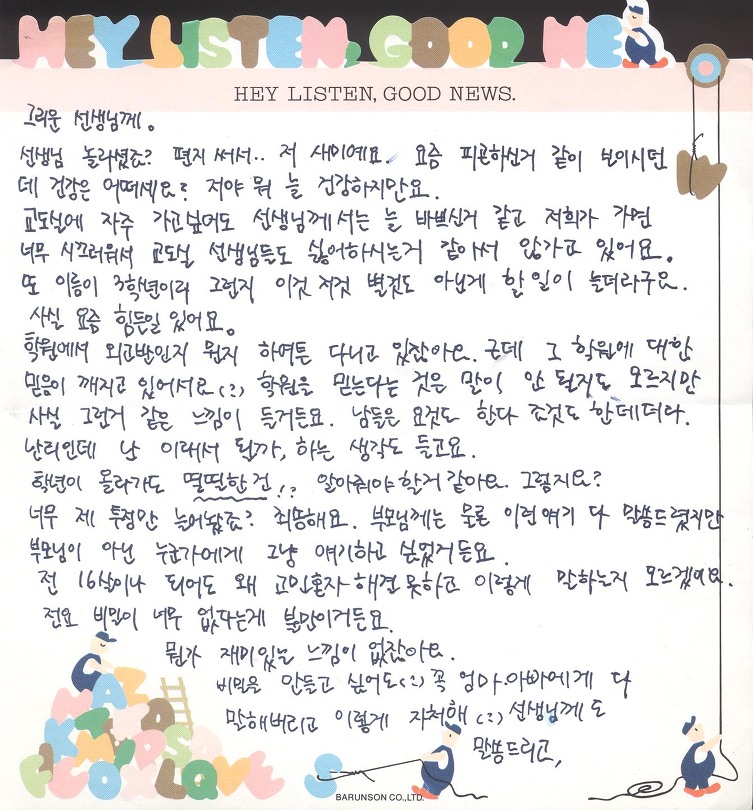 HEY LISTEN, GOOD NE
HEY LISTEN, GOOD NEWS.
그리운 선생님께.
선생님 놀라셨죠? 편지 써서.. 저 새미예요. 요즘 피곤하신거 같이 보이시던
데 건강은 어떠세요? 저야 뭐 늘 건강하지만요.
교도실에 자주 가고싶어도 선생님께서는 늘 바쁘신거 같고 저희가 가면
너무 시끄러워서 교도실 선생님들도 싫어하시는거 같아서 안가고 있어요.
또 이름이 3학년이라 그런지 이것 저것 별것도 아닌게 할 일이 늘더라구요.
사실 요즘 힘든일 있어요.
학원에서 외고반인지 뭔지 하여튼 다니고 있잖아요. 근데 그 학원에 대한
믿음이 깨지고 있어서요(?) 학원을 믿는다는 것은 말이 안 될지도 모르지만
사실 그런거 같은 느낌이 들거든요. 남들은 요것도 한다 조것도 한데더라.
난리인데 난 이래서 될까, 하는 생각도 들고요.
학년이 올라가도 떨떨한건!? 알아줘야 할거 같아요. 그렇지요?
너무 제 투정만 늘어놨죠? 죄송해요. 부모님께는 물론 이런 얘기 다 말씀드렸지만
부모님이 아닌 누군가에게 그냥 얘기하고 싶었거든요.
전 16살이나 되어도 왜 고민혼자 해결못하고 이렇게 말하는지 모르겠어요.
전요 비밀이 너무 없다는게 불만이거든요.
뭔가 재미있는 느낌이 없잖아요.
비밀을 만들고 싶어도(?) 꼭 엄마.아빠에게 다
말해버리고 이렇게 자처해(?) 선생님께도
말씀드리고,
BARUNSON CO.,LTD.